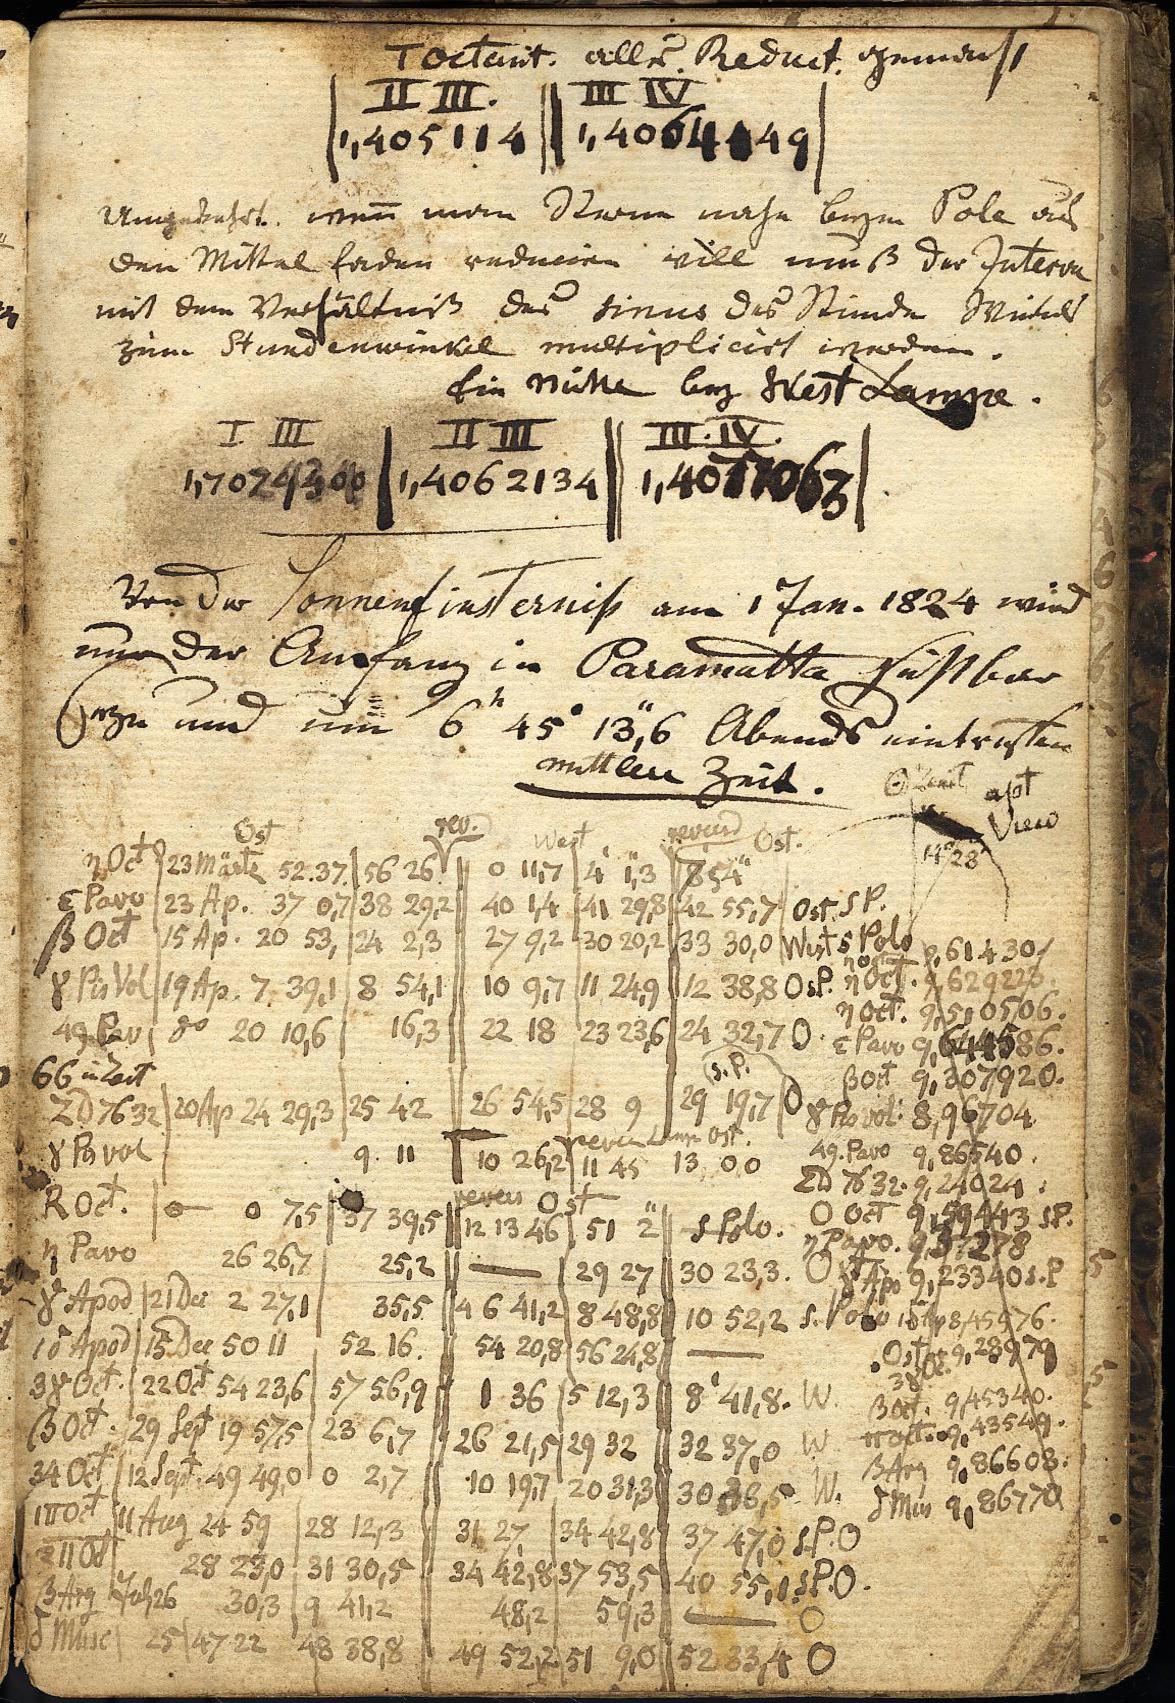 τ Octant. aller Reduct. gemäß
II III. III IV
1,405114 1,4064449
Umgekehrt. wenn man Sterne nahe beym Pole auf
den Mittel faden reduciren will muß der Interva
mit dem Verhältniß des sinus des Stunden Winkels
zum Stundenwinkel multiplicirt werden.
Ein Mitte bey West Lampe.
I III II III III. IV.
1,7024300 1,4062134 1,4077063
Von der Sonnenfinsterniß am 1 Jan. 1824 wird
nur der Anfang in Paramatta sichtbar
seyn und um 6h 45' 13",6 Abends eintreffen
mittlere Zeit.
Zenit apt
View
14° 28'
Ost rev. West reversd Ost.
η Oct 23 Märtz 52.37. 56 26 0 11,7 4' 1",3 8 54"
ε Pavo 23 Ap. 37 0,7 38 29,2 40 1,4 41 29,8 42 55,7 Ost. S.P.
β Oct 15 Ap. 20 53, 24 2,3 27 9,2 30 20,2 33 30,0 West s Polo
9,61430
γ Pis Vol 19 Ap. 7 39,1 8 54,1 10 9,7 11 24,9 12 38,8 O s.P. η Oct. 9,629223.
η Oct. 9,510506.
49 Pav do 20 10,6 16,3 22 18 23 23,6 24 32,7 O ε Pavo 9,644586.
66 in Zeit
β Oct 9,307920.
s.P.
ZD 7632 20 Ap 24 29,3 25 42 26 54,5 28 9 29 19,7 O γ Pis vol: 8,96704.
rever Lamp Ost.
γ Pis vol 9 11 10 26,2 11 45 13 0,0 49. Pavo 9,86540.
ZD 7632. 9,24024.
revers Ost
R Oct. 0 7,5 37 39,5 12 13 46 51 2" s Polo. O Oct 9,59443 S.P.
η Pavo. 9,37278
η Pavo 26 26,7 25,2 — 29 27 30 23,3. O γ Apo 9,23340 s.P
γ Apod 21 Dec 2 27,1 35,5 4 6 41,2 8 48,8 10 52,2 s. Polo 1δ Ap 8,45976.
1δ Apod 15 Dec 50 11 52 16. 54 20,8 56 24,8 — Ost 9,28979
3γ Oc.
3γ Oct. 22 Oct 54 23,6 57 56,9 1 36 5 12,3 8' 41,8. W. β Oct. 9,45340.
β Oct. 29 Sept 19 57,5 23 6,7 26 21,5 29 32 32 37,0 W π Oct. 9,43549.
34 Oct 12 Sept. 49 49,0 0 2,7 10 19,7 20 31,3 30 38,5 W. β Arg 9,86608.
δ Mus 9,86770
1π Oct 11 Aug 24 59 28 12,3 31 27, 34 42,8 37 47,0 s.P. O
2π Oct 28 23,0 31 30,5 34 42,8 37 53,5 40 55,1 s.P. O.
β Arg July 26 30,3 9 41,2 48,2 59,3 — O
δ Musc 25 47 22 48 38,8 49 52,2 51 9,0 52 33,4 O